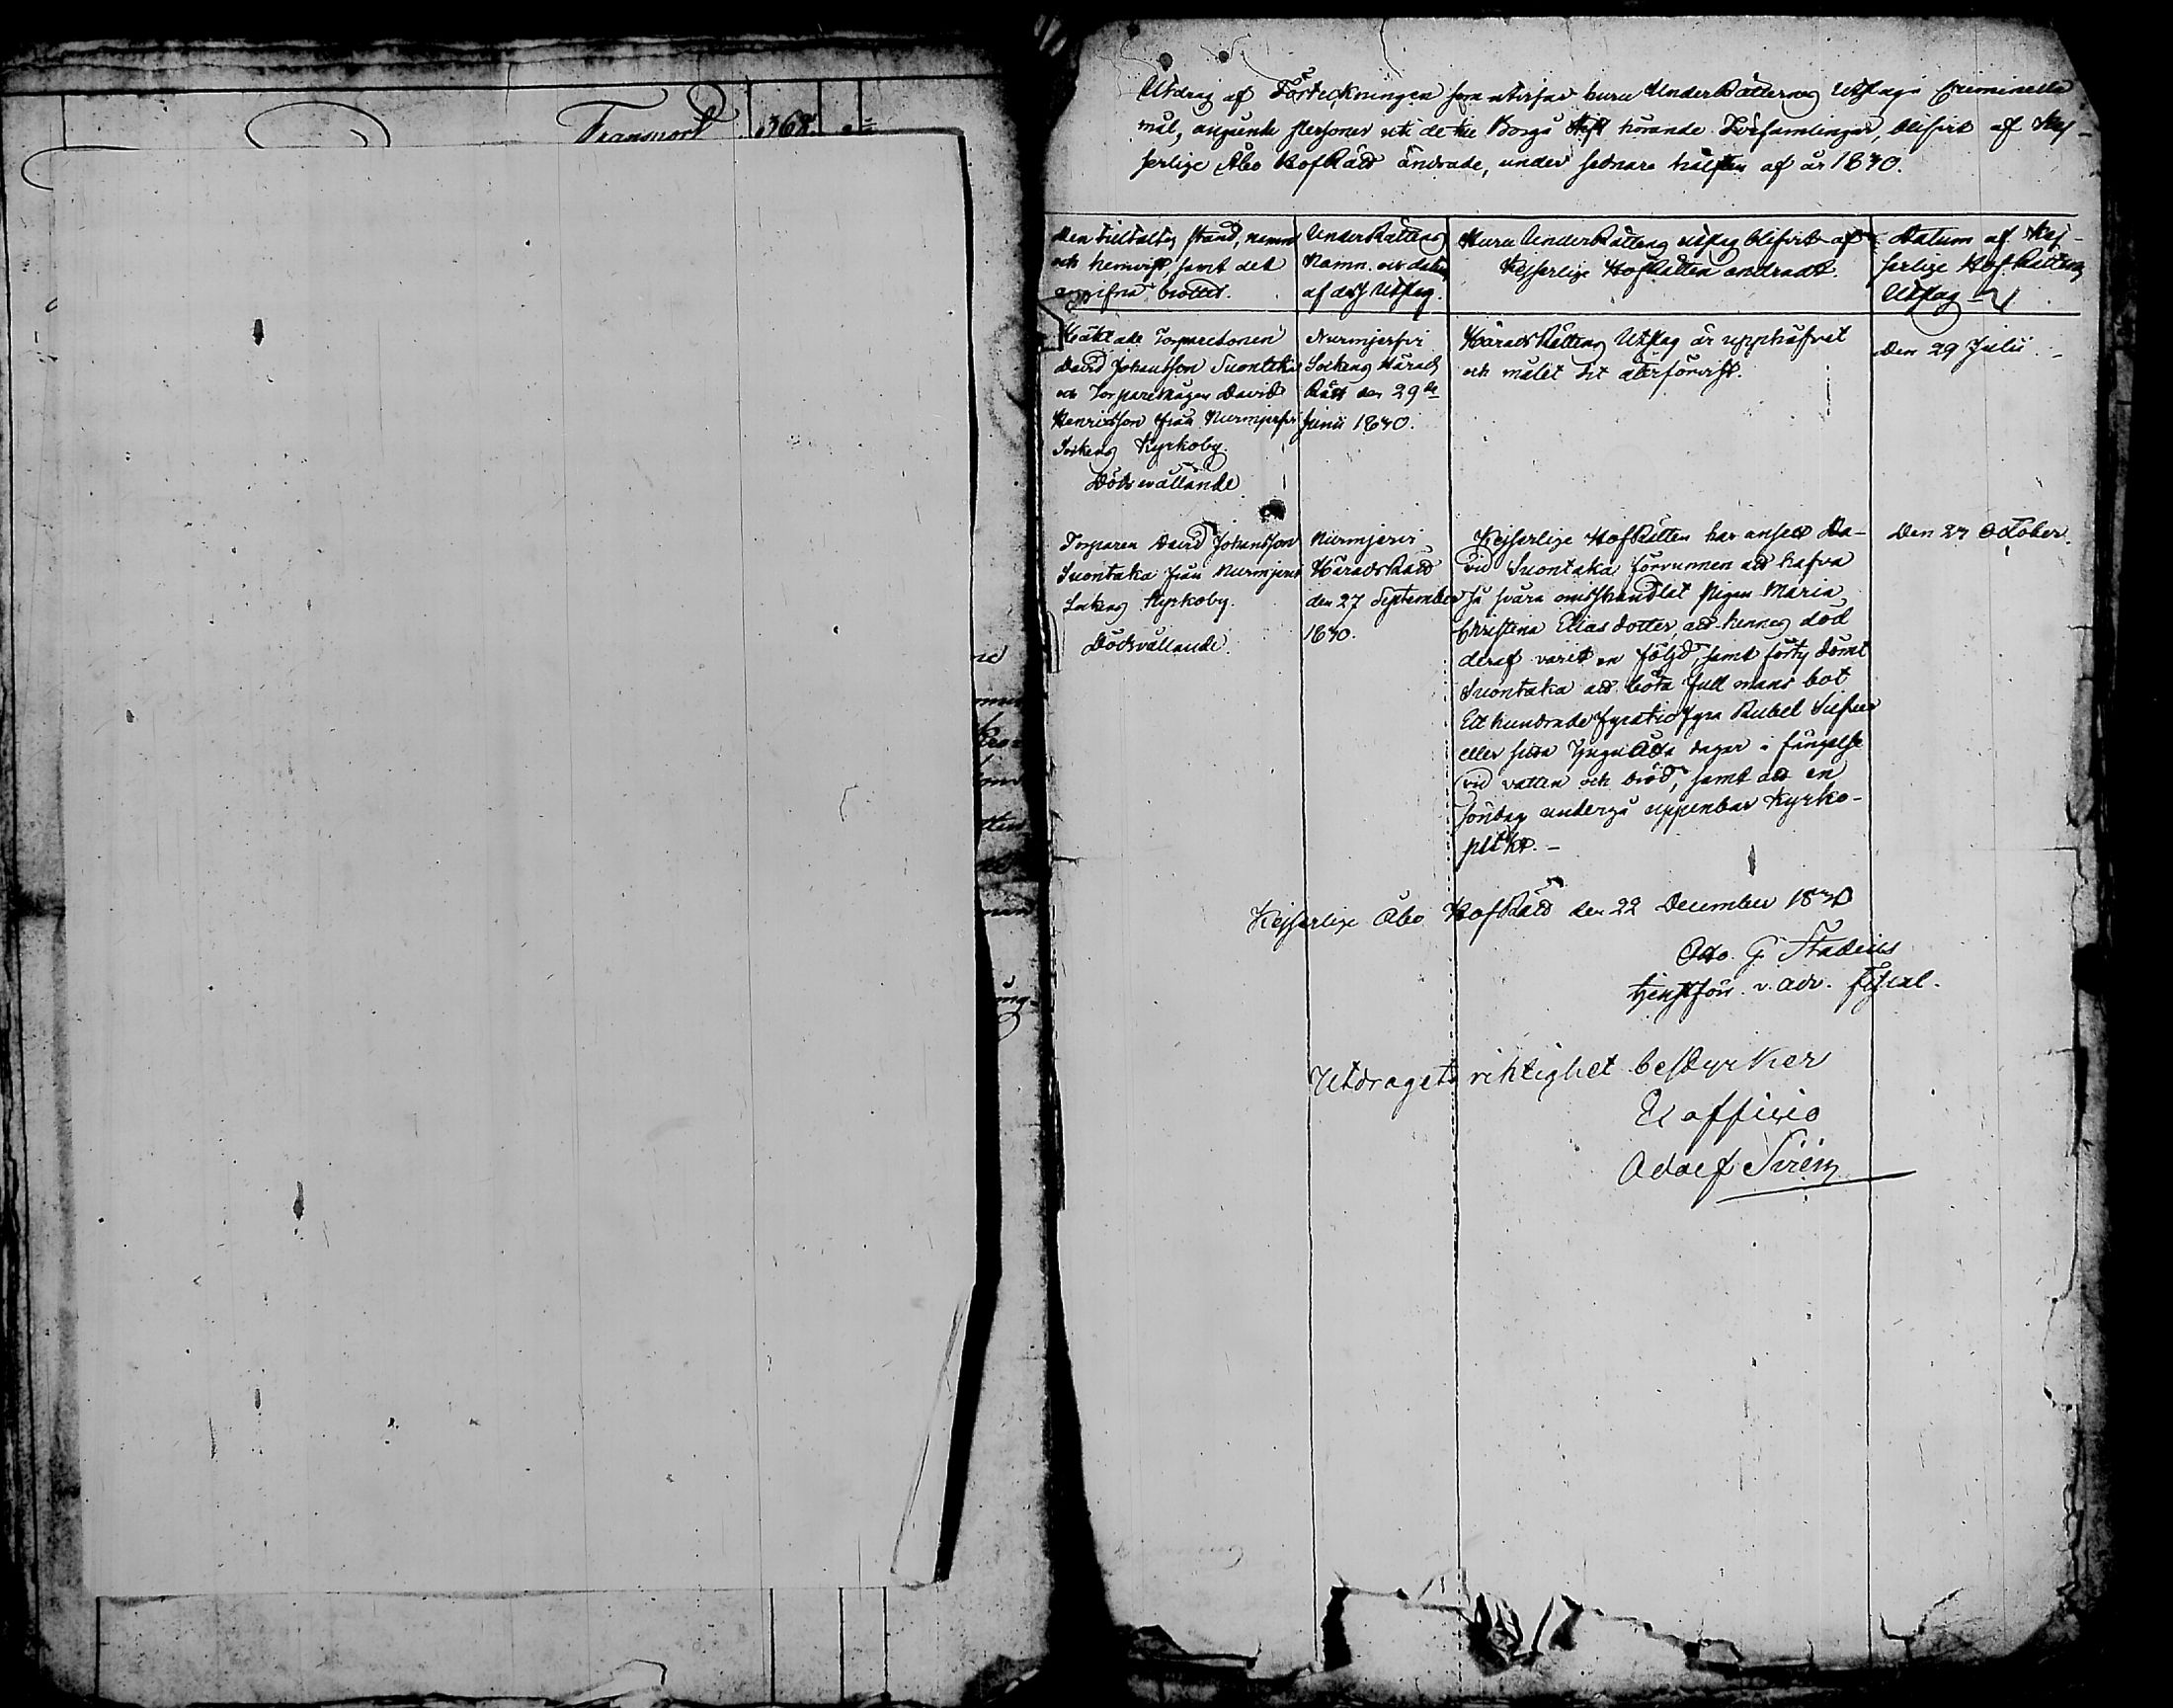 Transport 368.
Utdrag af Förteckningen som utvisar huru UnderRätternas Utslag i Criminella
mål, angående personer uti de till Borgå Stift hörande Församlingar, blifvit af Kej-
serlige Åbo HofRätt ändrade, under sednare hälften af år 1830.
Den tilltaltes stånd, namn
och hemvist, samt det
angifna brottet.
UnderRättens
Namn och datum
af dess Utslag.
Huru UnderRättens utslag blifvit af
Kejserlige HofRätten ändradt.
Datum af Kej-
serlige HofRättens
Utslag
Häktade Torparesonen
David Johansson Suontaka
och Torparemågen David
Henricsson från Nurmijerfvi
Sockens Kyrkoby.
Dödsvållande
Nurmjerfvi
Sockens Härads
Rätt den 29de
Junii 1830.
HäradsRättens Utslag är upphäfvet
och målet dit återförvist.
Den 29 Julii. -
Torparen David Johansson
Suontaka från Nurmjervi
Sockens Kyrkoby.
Dödsvållande.
Nurmjervi
HäradsRätt
den 27 September
1830.
Kejserlige HofRätten har ansett Da-
vid Suontaka förvunnen att hafva
så svåra misshandlat Pigan Maria
Christina Eliasdotter, att hennes död
deraf varit en följd, samt förty dömt
Suontaka att böta full mans bot
Ett hundrade fyratio fyra Rubel Silfver
eller sitta Tjugu Åtta dagar i fängelse
vid vatten och bröd, samt att en
söndag undergå uppenbar Kyrko-
plikt. -
Den 27 October.
Kejserlige Åbo HofRätt den 22 December 1830
Otto G Stadius
tjenstför. v. adv. fiscal.
Utdragets riktighet bestyrker
Ex officio
Adolf Sirén